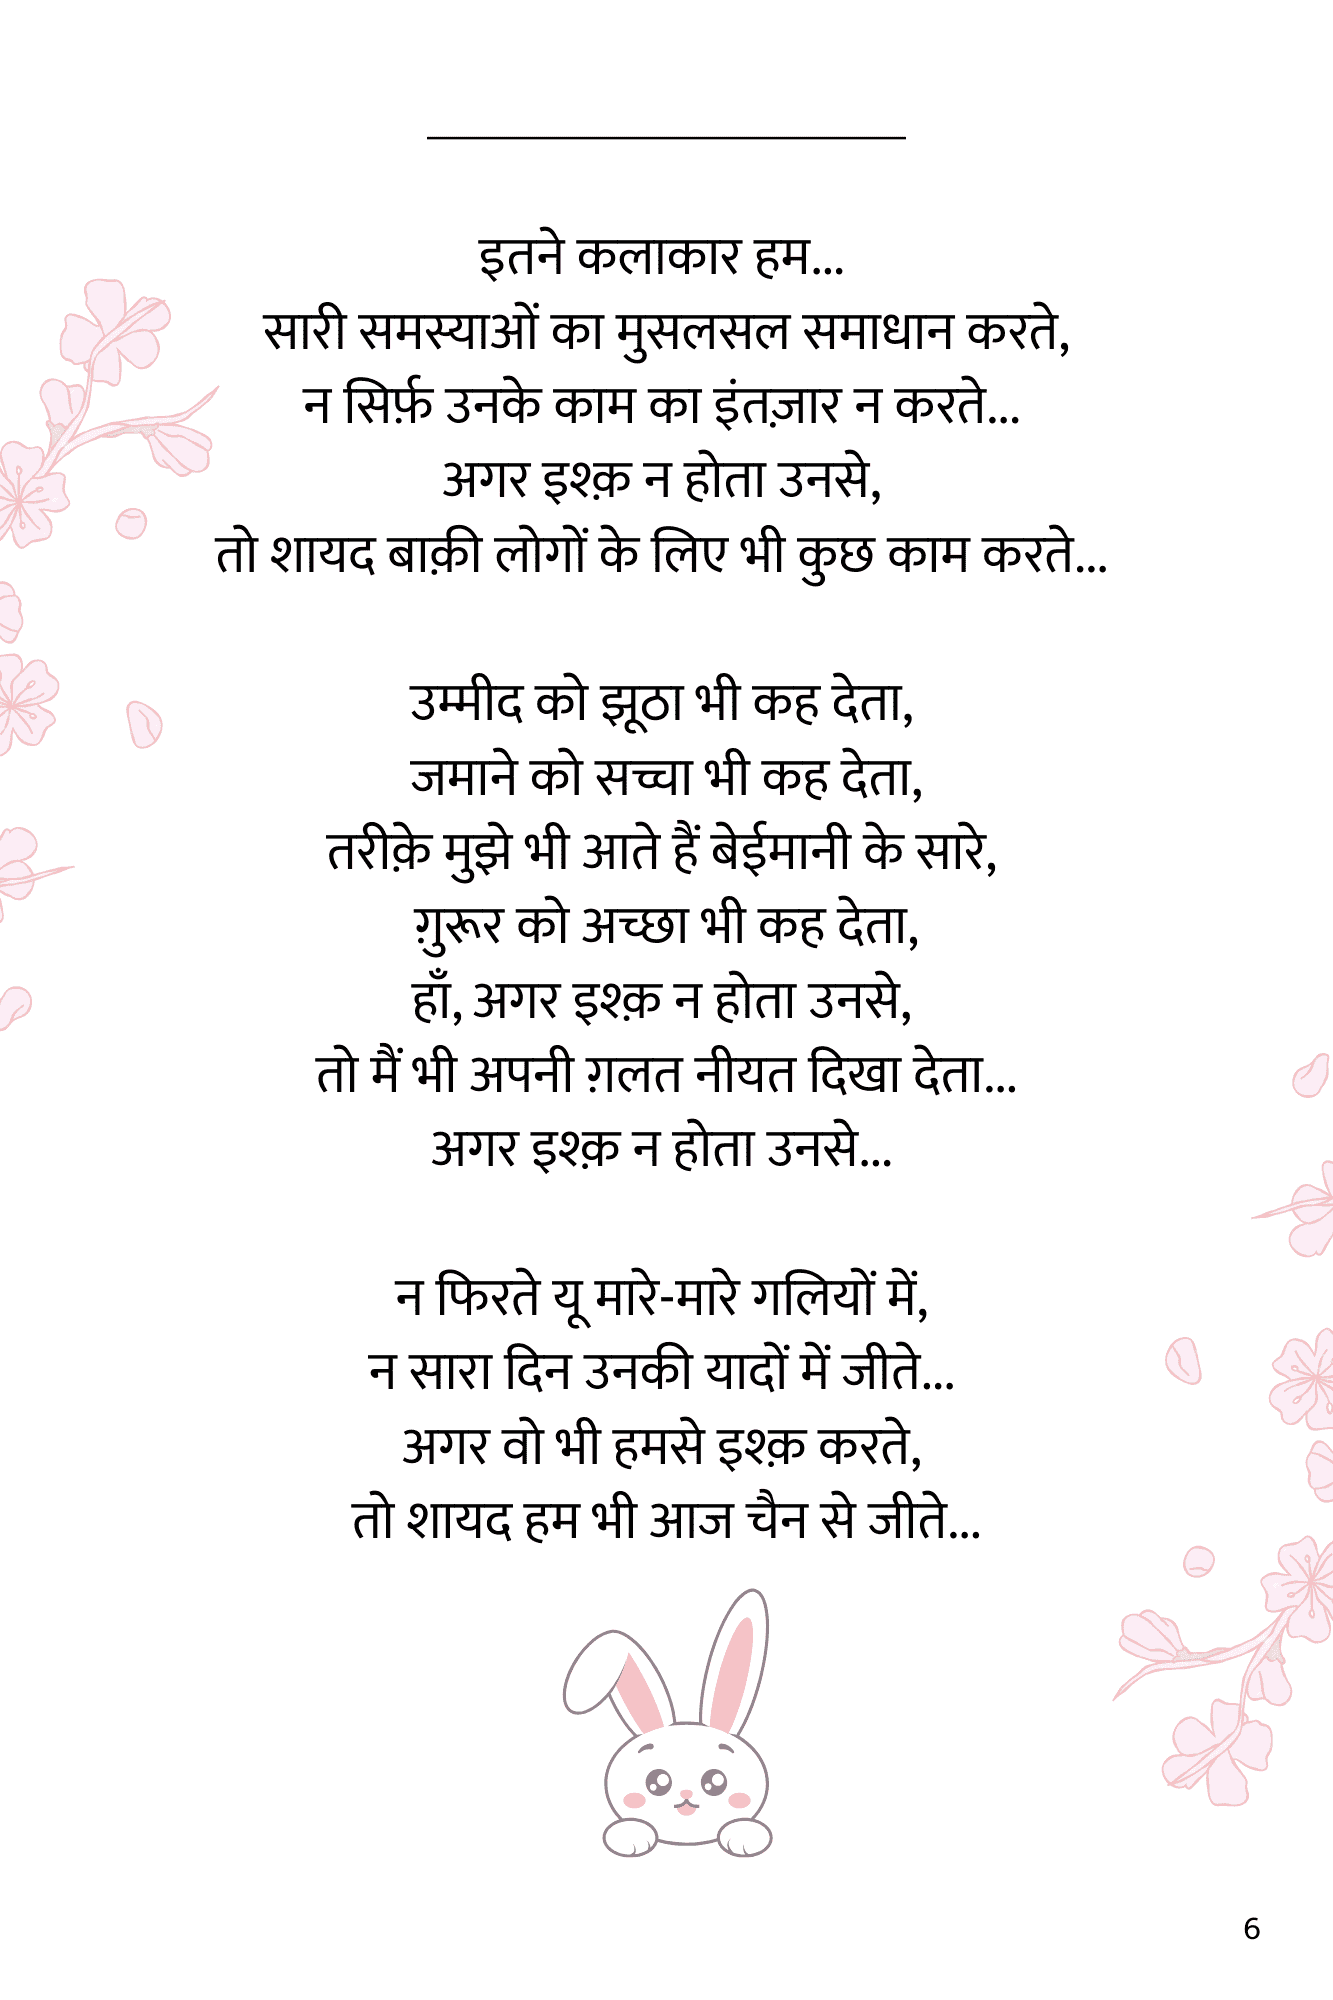 इतने कलाकार हम...
सारी समस्याओं का मुसलसल समाधान करते,
न सिर्फ़ उनके काम का इंतज़ार न करते...
अगर इश्क़ न होता उनसे,
तो शायद बाक़ी लोगों के लिए भी कुछ काम करते...
उम्मीद को झूठा भी कह देता,
जमाने को सच्चा भी कह देता,
तरीक़े मुझे भी आते हैं बेईमानी के सारे,
ग़ुरूर को अच्छा भी कह देता,
हाँ, अगर इश्क़ न होता उनसे,
तो मैं भी अपनी ग़लत नीयत दिखा देता...
अगर इश्क़ न होता उनसे...
न फिरते यू मारे-मारे गलियों में,
न सारा दिन उनकी यादों में जीते...
अगर वो भी हमसे इश्क़ करते,
तो शायद हम भी आज चैन से जीते...
6